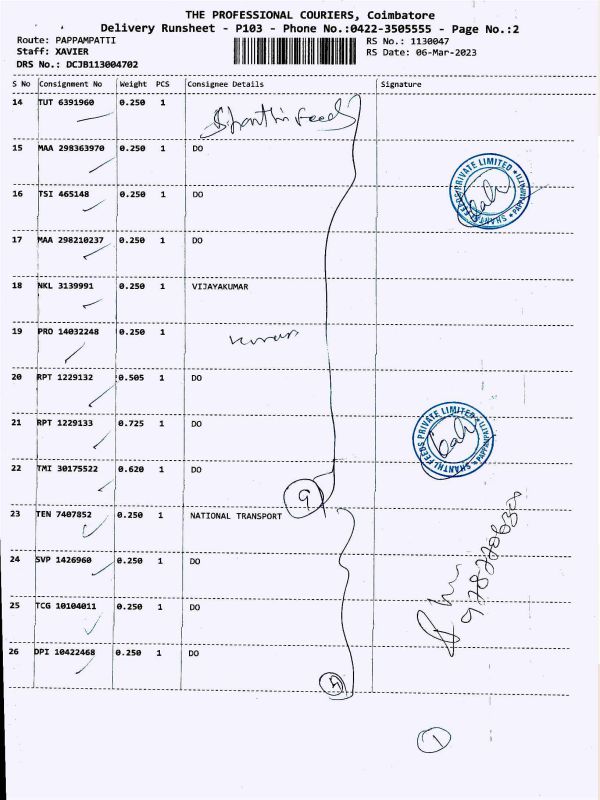 THE PROFESSIONAL COURIERS, Coimbatore
Delivery Runsheet - P103 - Phone No.:0422-3505555 - Page No.:2
Route: PAPPAMPATTI
RS No.: 1130047
Staff: XAVIER
RS Date: 06-Mar-2023
DRS No.: DCJB113004702
S No Consignment No Weight PCS Consignee Details Signature
14 TUT 6391960 0.250 1 Shanthi Feeds
15 MAA 298363970 0.250 1 DO
SHANTHI FEEDS PRIVATE LIMITED * PAPPAMPATTI *
16 TSI 465148 0.250 1 DO
17 MAA 298210237 0.250 1 DO
18 NKL 3139991 0.250 1 VIJAYAKUMAR
19 PRO 14032248 0.250 1
20 RPT 1229132 0.505 1 DO
21 RPT 1229133 0.725 1 DO
SHANTHI FEEDS PRIVATE LIMITED * PAPPAMPATTI *
22 TMI 30175522 0.620 1 DO
9
23 TEN 7407852 0.250 1 NATIONAL TRANSPORT
24 SVP 1426960 0.250 1 DO
25 TCG 10104011 0.250 1 DO
26 DPI 10422468 0.250 1 DO
1